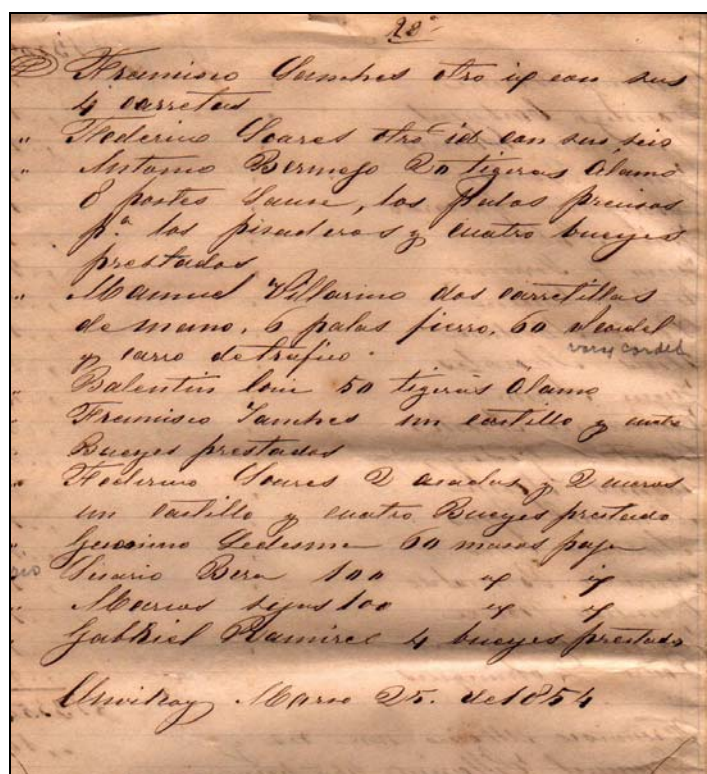 22
Francisco Sanches otro id con sus
4 carretas
" Federico Soares otro id con sus seis
" Antonio Bermejo 20 tigeras alamo
8 postes Sauce, los palos precisos
pa. los pisaderos y cuatro bueyes
prestados
" Manuel Villarino dos carretillas
de mano, 6 palas fierro, 60 cordel
y carro de trafico.
vars cordel
Balentin 50 tigeras alamo
Francisco Sanches un castillo y cuatro
Bueyes prestados
" Federico Soares 2 asadas y 2 cueros
un castillo y cuatro Bueyes prestado
" Geronimo Ledesma 60 masos paja
Bera 100 id id
" Marcos 100 id id
Gabkiel Ramires 4 bueyes prestado
Marso 25. de 1854